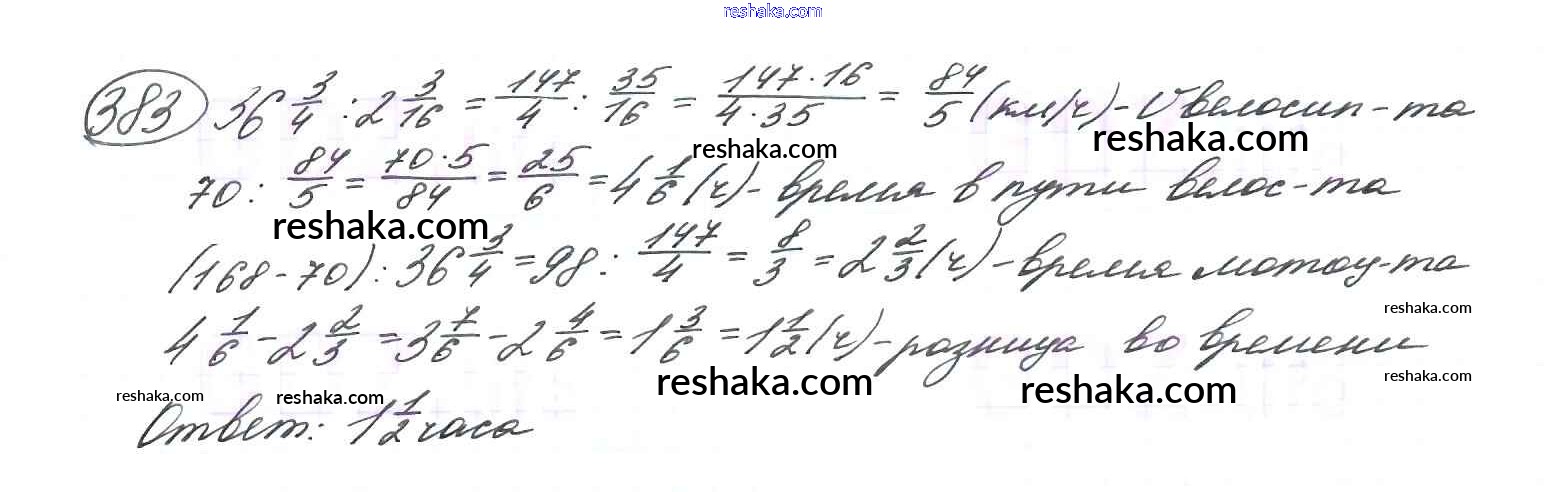 reshaka.com
383 36 3/4 : 2 3/16 = 147/4 : 35/16 = 147·16/4·35 = 84/5 (км/ч) - V велосип-та
reshaka.com
reshaka.com
70 : 84/5 = 70·5/84 = 25/6 = 4 1/6 (ч) - время в пути велос-та
reshaka.com
(168-70) : 36 3/4 = 98 : 147/4 = 8/3 = 2 2/3 (ч) - время мотоц-та
reshaka.com
4 1/6 - 2 2/3 = 3 7/6 - 2 4/6 = 1 3/6 = 1 1/2 (ч) - разница во времени
reshaka.com
reshaka.com
reshaka.com
reshaka.com
reshaka.com
Ответ: 1 1/2 часа